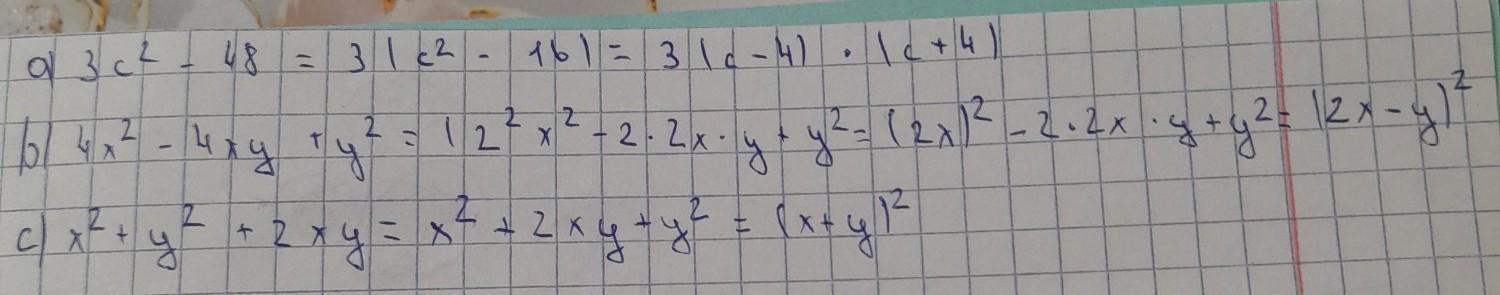 a) 3c² - 48 = 3(c² - 16) = 3(c-4) · (c+4)
b) 4x² - 4xy + y² = (2²x² - 2·2x·y + y² = (2x)² - 2·2x·y + y² = (2x-y)²
c) x² + y² + 2xy = x² + 2xy + y² = (x+y)²